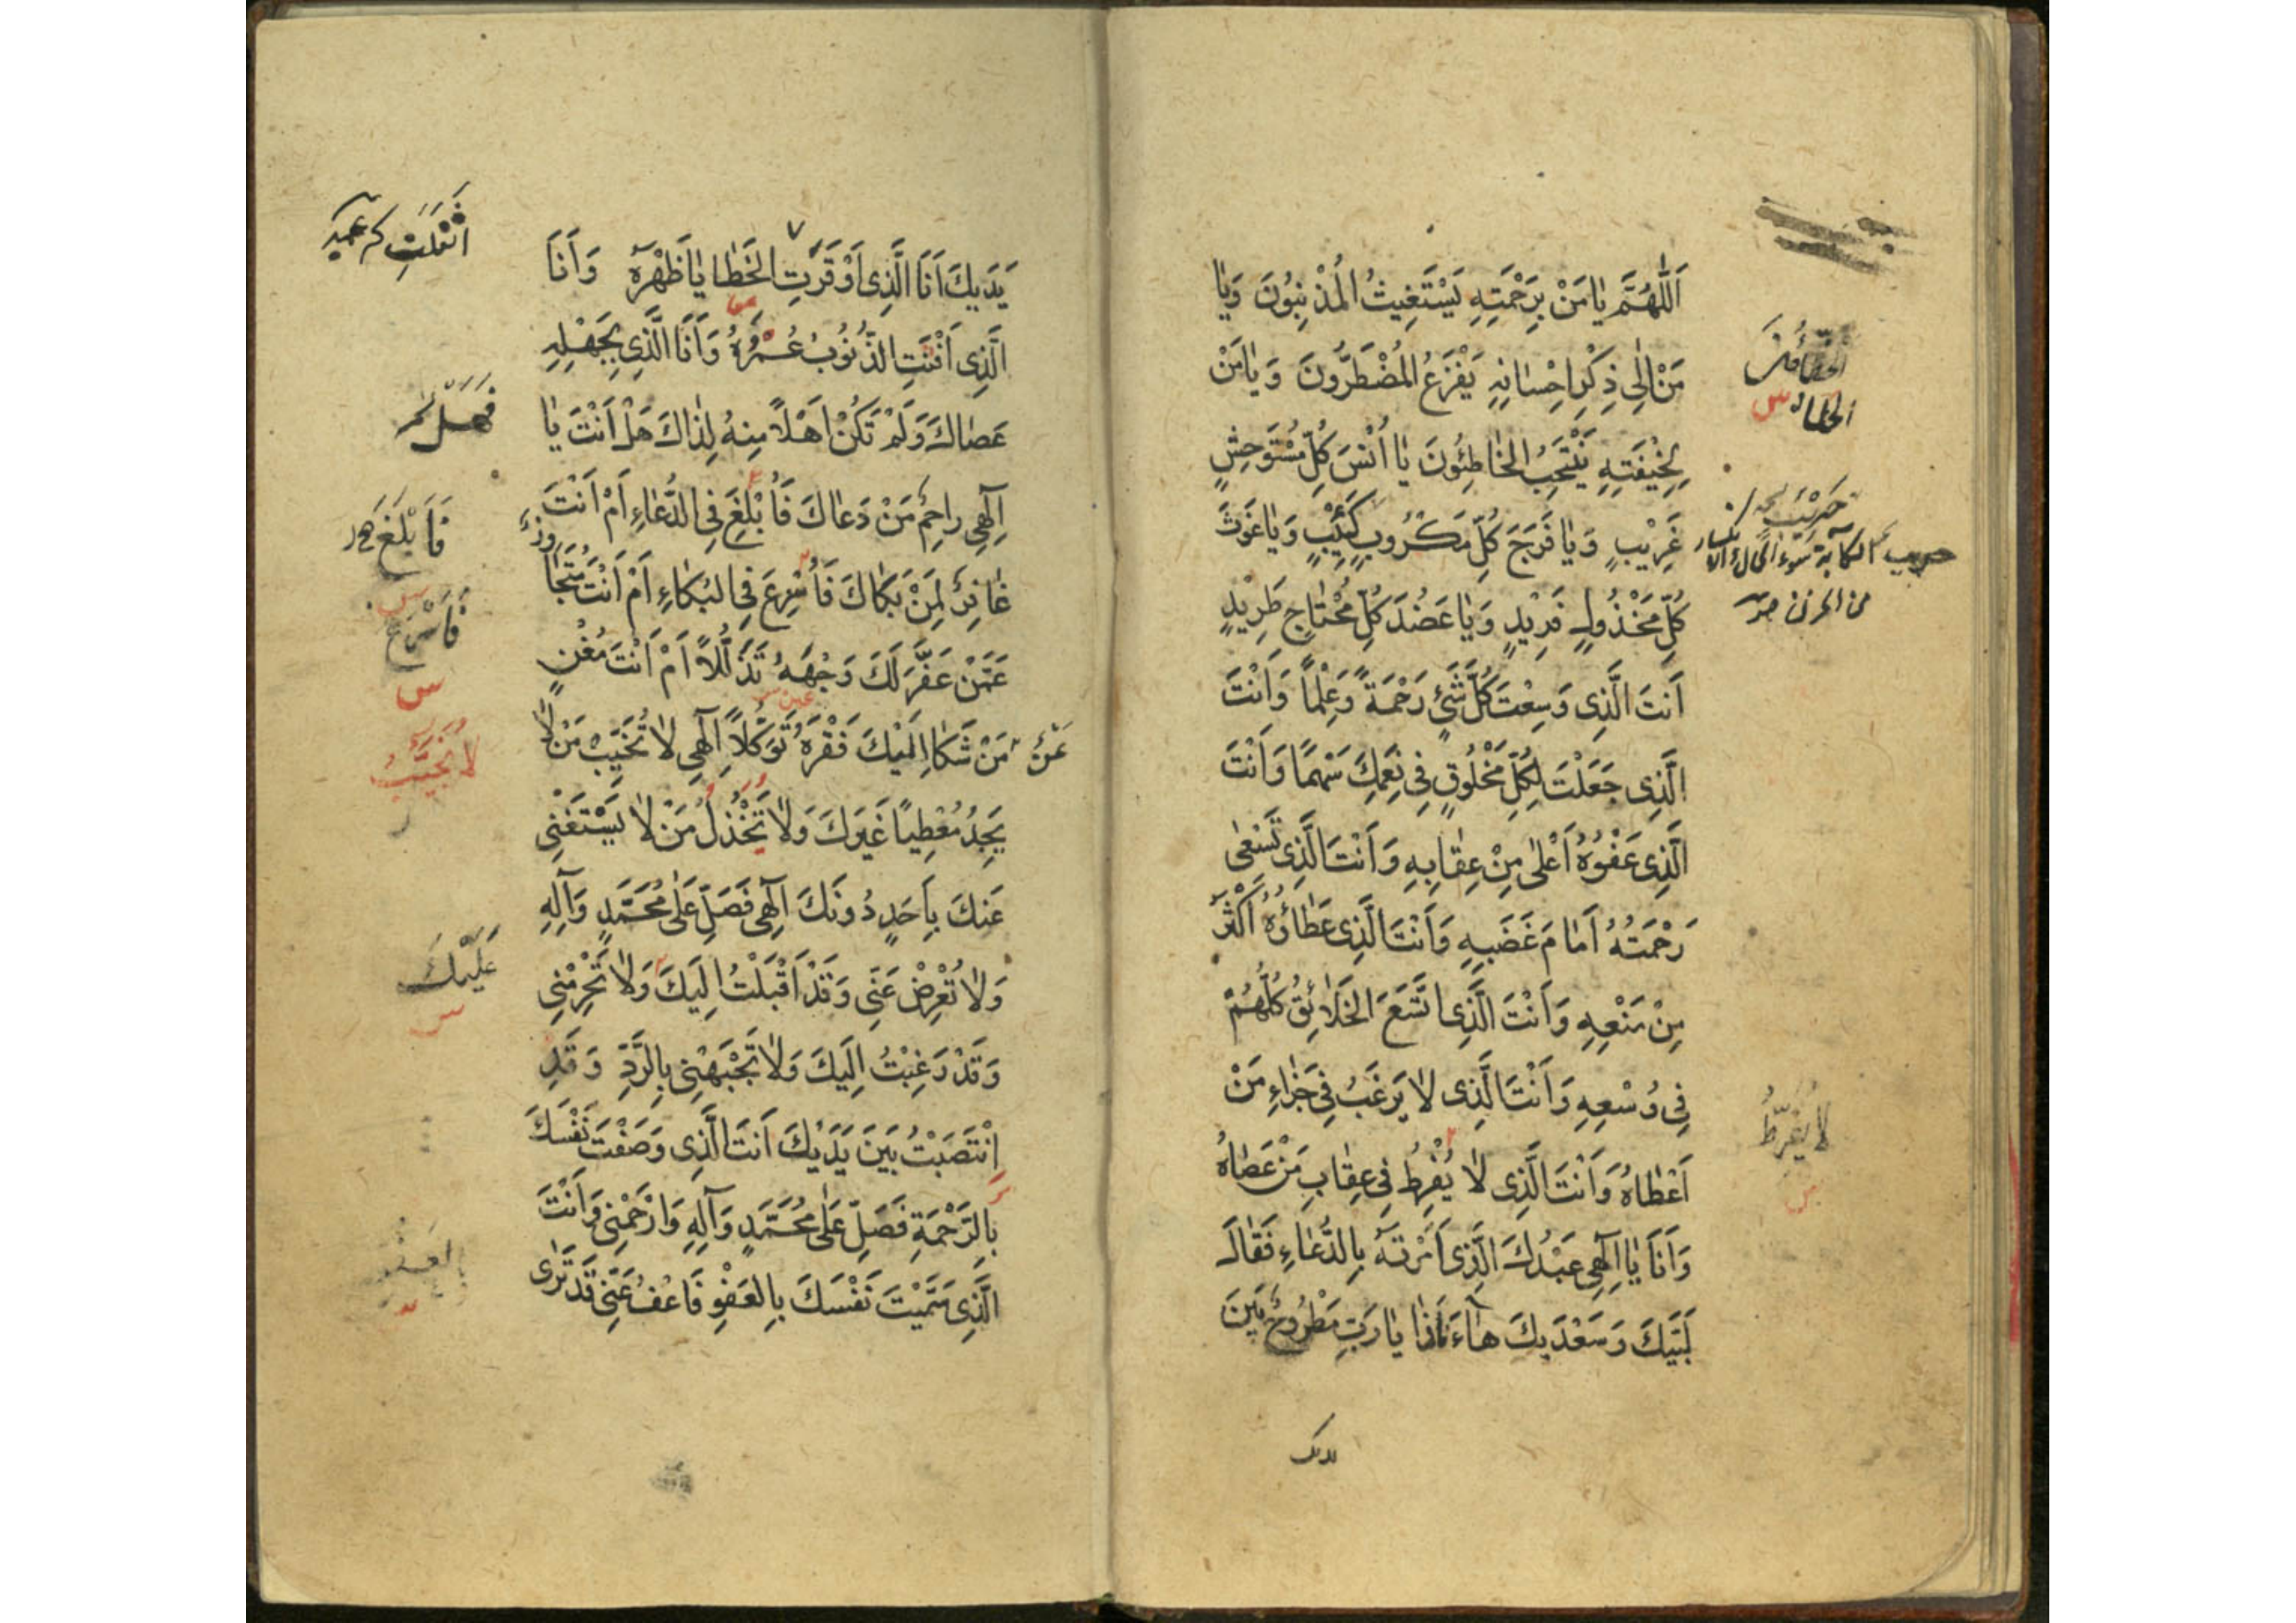 اَللّٰهُمَّ يٰا مَنْ بِرَحْمَتِهِ يَسْتَغِيثُ الْمُذْنِبُونَ وَيٰا
مَنْ اِلٰى ذِكْرِ اِحْسٰانِهِ يَفْزَعُ الْمُضْطَرُّونَ وَ يٰا مَنْ
لِخِيْفَتِهِ يَنْتَحِبُ الخٰاطِئُونَ يٰا اُنْسَ كُلِّ مُسْتَوْحِشٍ
غَرِيْبٍ وَ يٰا فَرَجَ كُلِّ مَكْرُوبٍ كَئِيْبٍ وَ يٰا غَوْثَ
كُلِّ مَخْذُولٍ فَرِيْدٍ وَ يٰا عَضُدَ كُلِّ مُحْتٰاجٍ طَرِيْدٍ
اَنْتَ الَّذِى وَسِعْتَ كُلَّ شَىْءٍ رَحْمَةً وَعِلْماً وَ اَنْتَ
الَّذِى جَعَلْتَ لِكُلِّ مَخْلُوقٍ فِى نِعَمِكَ سَهْمًا وَ اَنْتَ
الَّذِى عَفْوُهُ اَعْلٰى مِنْ عِقٰابِهِ وَ اَنْتَ الَّذِى تَسْعٰى
رَحْمَتُهُ اَمٰامَ غَضَبِهِ وَ اَنْتَ الَّذِى عَطٰاؤُهُ اَكْثَرُ
مِنْ مَنْعِهِ وَ اَنْتَ الَّذِى اتَّسَعَ الخَلٰائِقُ كُلُّهُمْ
فِى وُسْعِهِ وَ اَنْتَ الَّذِى لٰا يَرْغَبُ فِى جَزٰاءِ مَنْ
اَعْطٰاهُ وَ اَنْتَ الَّذِى لٰا يُفْرِطُ فِى عِقٰابِ مَنْ عَصٰاهُ
وَ اَنَا يٰا اِلٰهِى عَبْدُكَ الَّذِى اَمَرْتَهُ بِالدُّعٰاءِ فَقٰالَ
لَبَّيْكَ وَ سَعْدَيْكَ هٰا اَنَا ذٰا يٰا رَبِّ مَطْرُوحٌ بَيْنَ
لا يُفَرِّطُ
يديك
يَدَيْكَ اَنَا الَّذِى اَوْقَرَتِ الْخَطٰايٰا ظَهْرَهُ وَ اَنَا
الَّذِى اَفْنَتِ الذُّنُوبُ عُمْرَهُ وَ اَنَا الَّذِى بِجَهْلِهِ
عَصٰاكَ وَ لَمْ تَكُنْ اَهْلاً مِنْهُ لِذٰاكَ هَلْ اَنْتَ يٰا
اِلٰهِى رٰاحِمٌ مَنْ دَعٰاكَ فَاُبْلِغَ فِى الدُّعٰاءِ اَمْ اَنْتَ
غٰافِرٌ لِمَنْ بَكٰاكَ فَاُسْرِعَ فِى البُكٰاءِ اَمْ اَنْتَ مُتَجٰاوِزٌ
عَمَّنْ عَفَّرَ لَكَ وَجْهَهُ تَذَلُّلاً اَمْ اَنْتَ مُغْنٍ
مَنْ شَكٰا اِلَيْكَ فَقْرَهُ تَوَكُّلاً اِلٰهِى لٰا تُخَيِّبْ مَنْ لٰا
يَجِدُ مُعْطِيًا غَيْرَكَ وَ لٰا تَخْذُلْ مَنْ لٰا يَسْتَغْنِى
عَنْكَ بِاَحَدٍ دُونَكَ اِلٰهِى فَصَلِّ عَلٰى مُحَمَّدٍ وَ آلِهِ
وَ لٰا تُعْرِضْ عَنِّى وَ قَدْ اَقْبَلْتُ اِلَيْكَ وَ لٰا تَحْرِمْنِى
وَ قَدْ رَغِبْتُ اِلَيْكَ وَ لٰا تَجْبَهْنِى بِالرَّدِّ وَ قَدِ
انْتَصَبْتُ بَيْنَ يَدَيْكَ اَنْتَ الَّذِى وَصَفْتَ نَفْسَكَ
بِالرَّحْمَةِ فَصَلِّ عَلٰى مُحَمَّدٍ وَ آلِهِ وَ ارْحَمْنِى وَ اَنْتَ
الَّذِى سَمَّيْتَ نَفْسَكَ بِالعَفْوِ فَاعْفُ عَنِّى قَدْ تَرٰى
اَثْقَلَتِ
فَهَلْ
فَاَبْلَغَ
فَاَسْرَعَ
لا يُخَيَّبُ
عَلَيْكَ